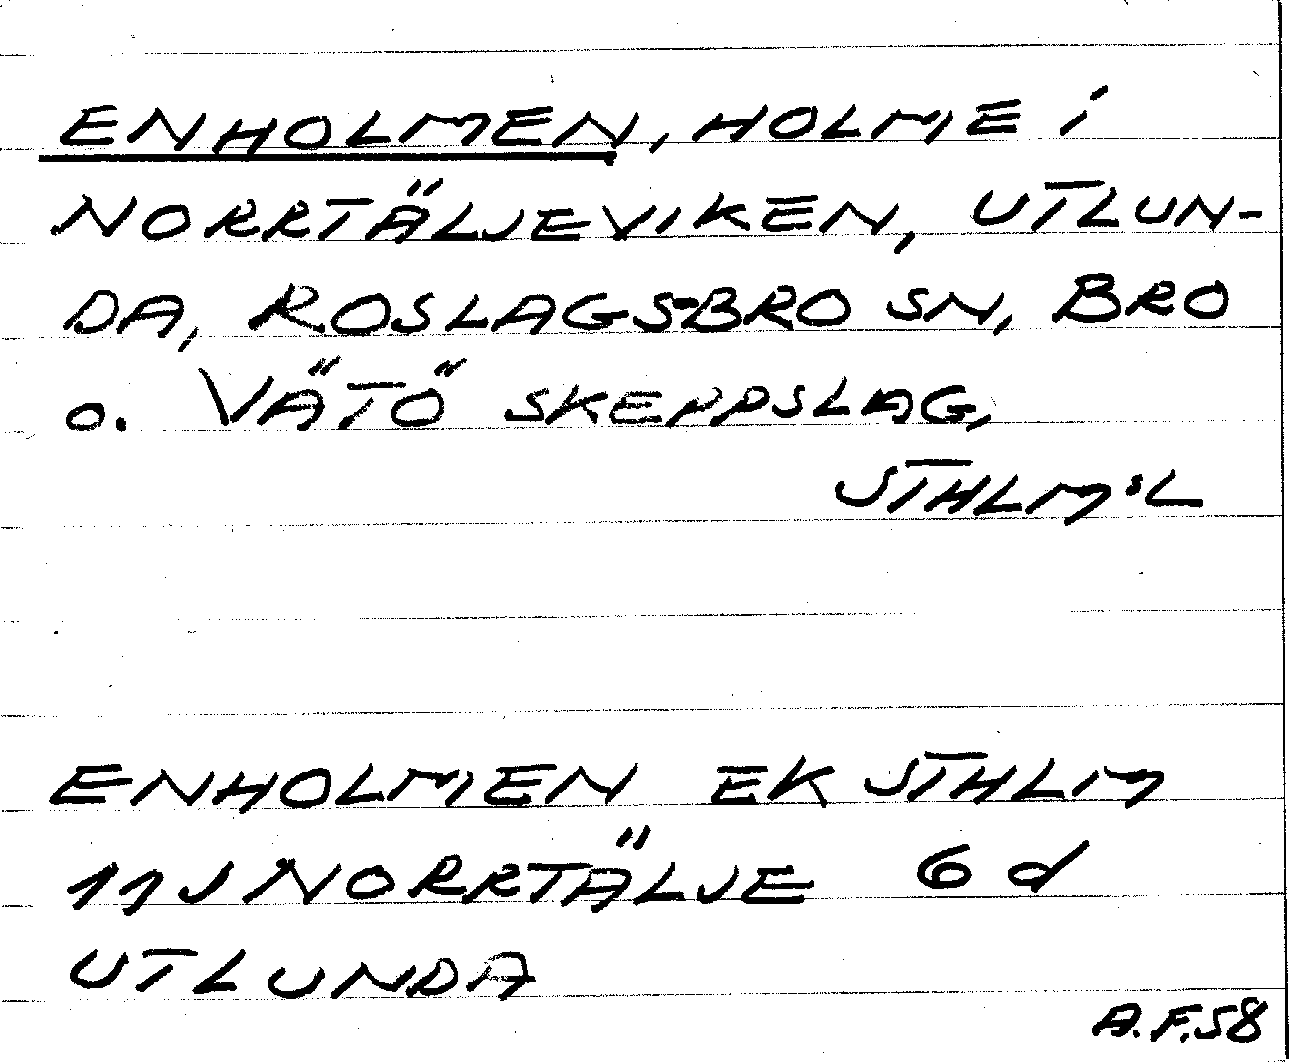 ENHOLMEN, HOLME i
NORRTÄLJEVIKEN, UTLUN-
DA, ROSLAGS-BRO SN, BRO
o. VÄTÖ SKEPPSLAG,
STHLM:L
ENHOLMEN EK STHLM
11J NORRTÄLJE 6 d
UTLUNDA
A.F.58